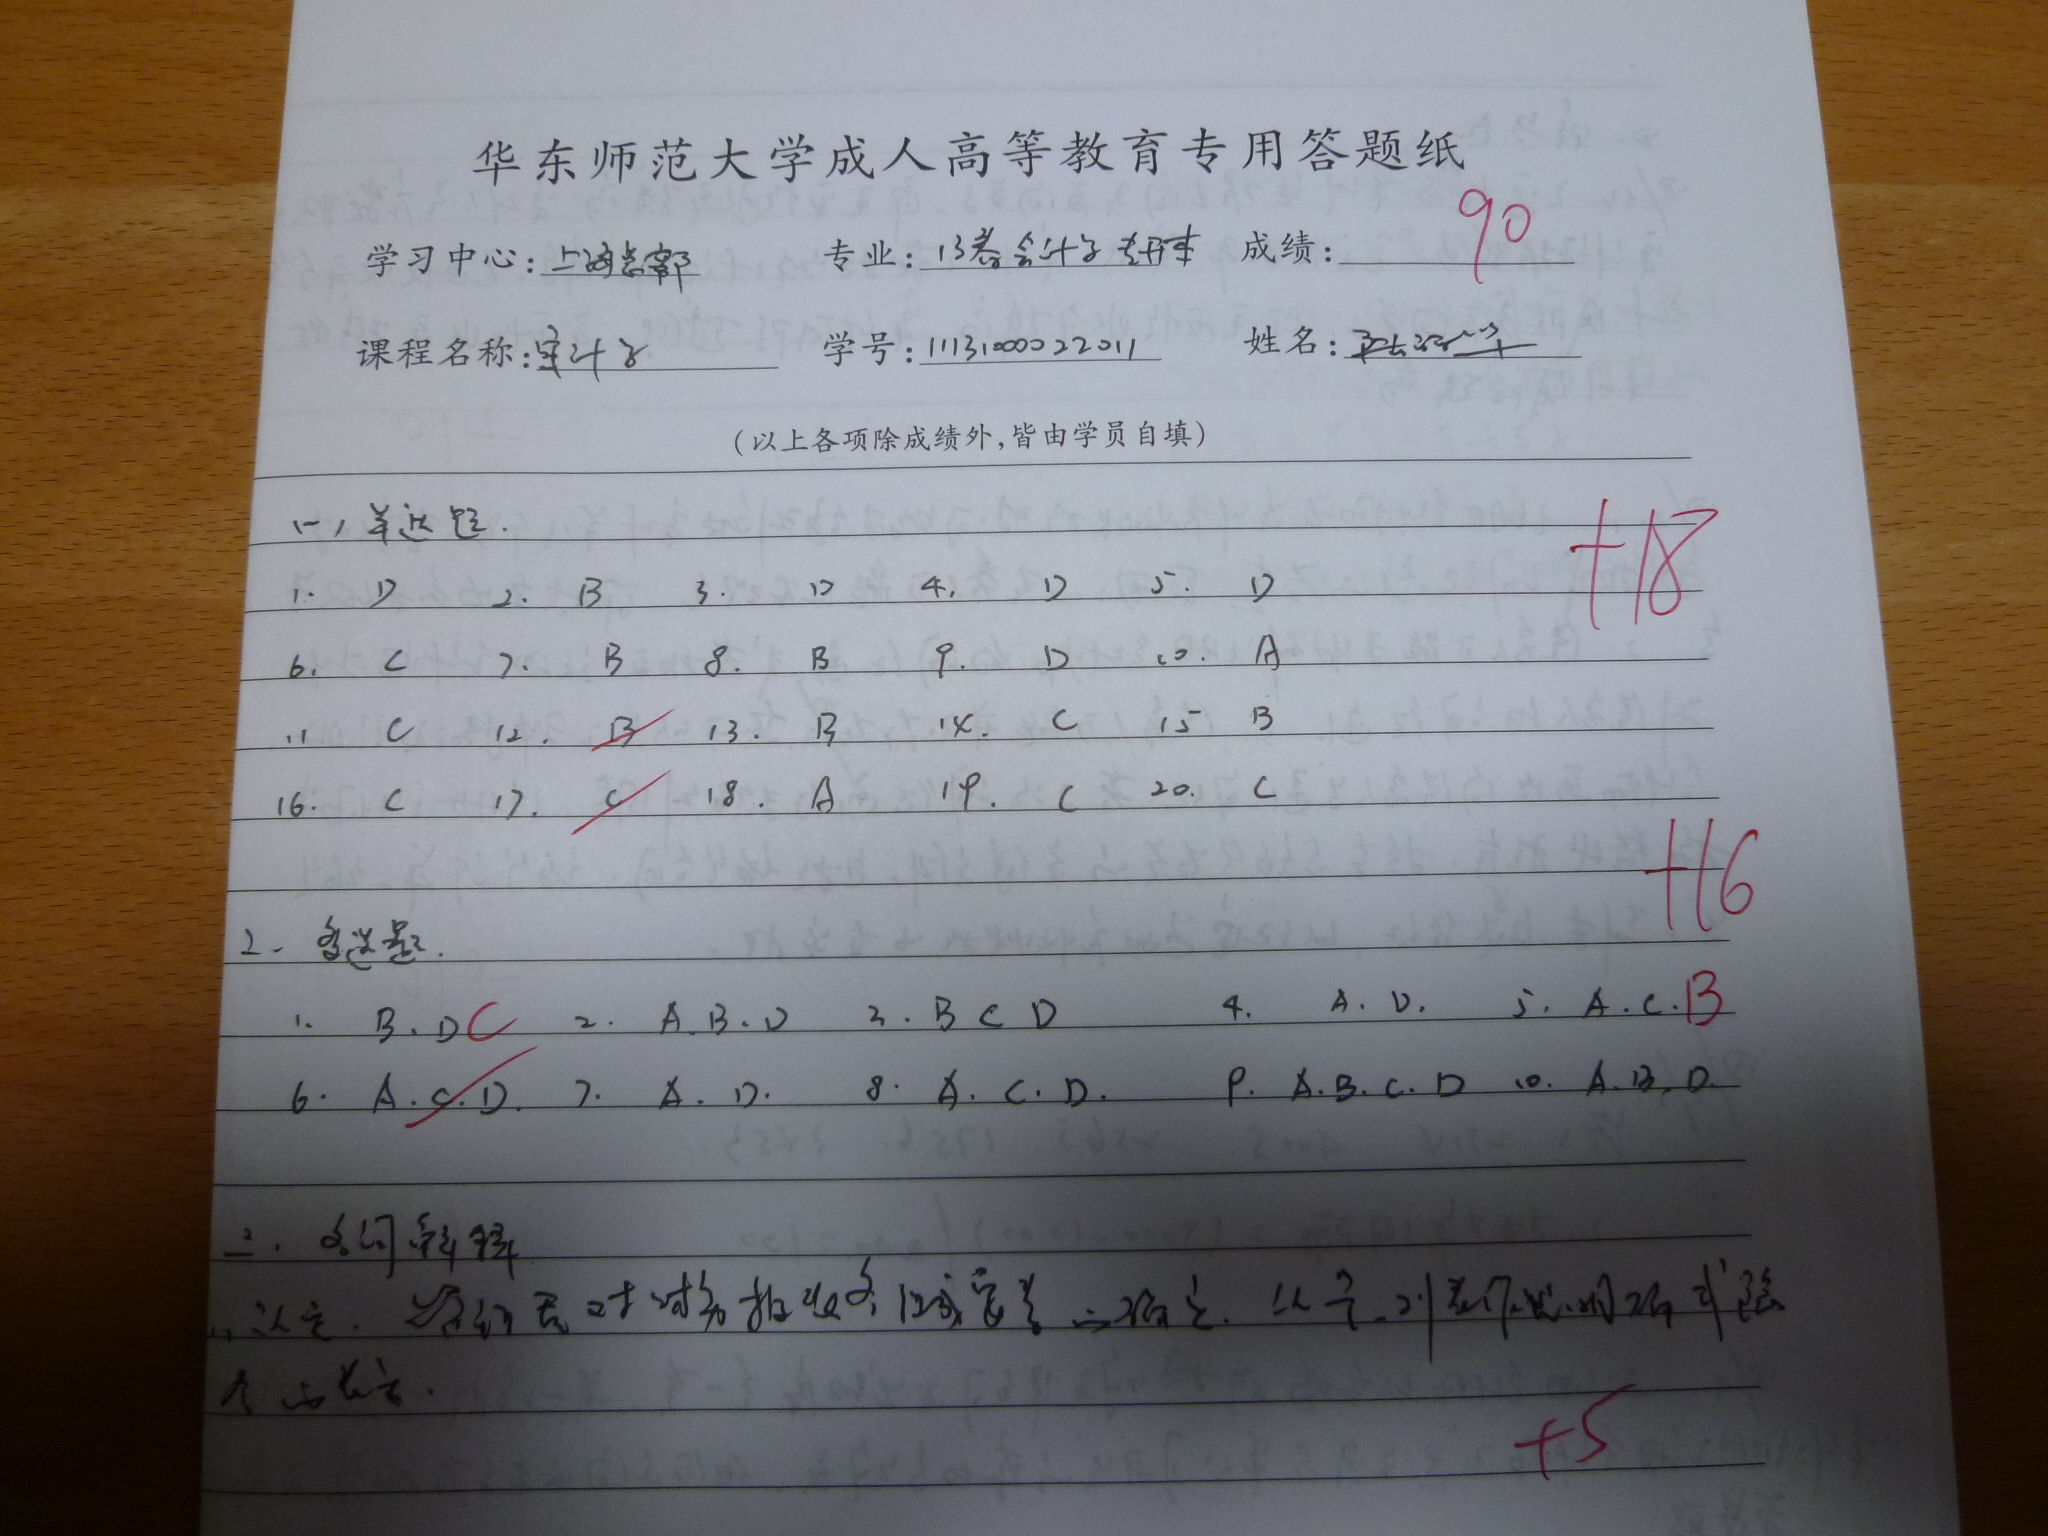 华东师范大学成人高等教育专用答题纸
学习中心:上海总部 专业:13春会计学专升本 成绩: 90
课程名称:审计学 学号:1113100002201 1 姓名:
(以上各项除成绩外,皆由学员自填)
(一)单选题. +18
1. D 2. B 3. D 4. D 5. D
6. C 7. B 8. B 9. D 10. A
11 C 12. B 13. B 14. C 15 B
16. C 17. C 18. A 19. C 20. C
+16
2. 多选题.
1. B.D C 2. A.B.D 3. B C D 4. A.D. 5. A.C.B
6. A.C.D. 7. A.D. 8. A.C.D. 9. A.B.C.D 10. A.B.D.
三.名词解释
1.认定. 对财务报
+5